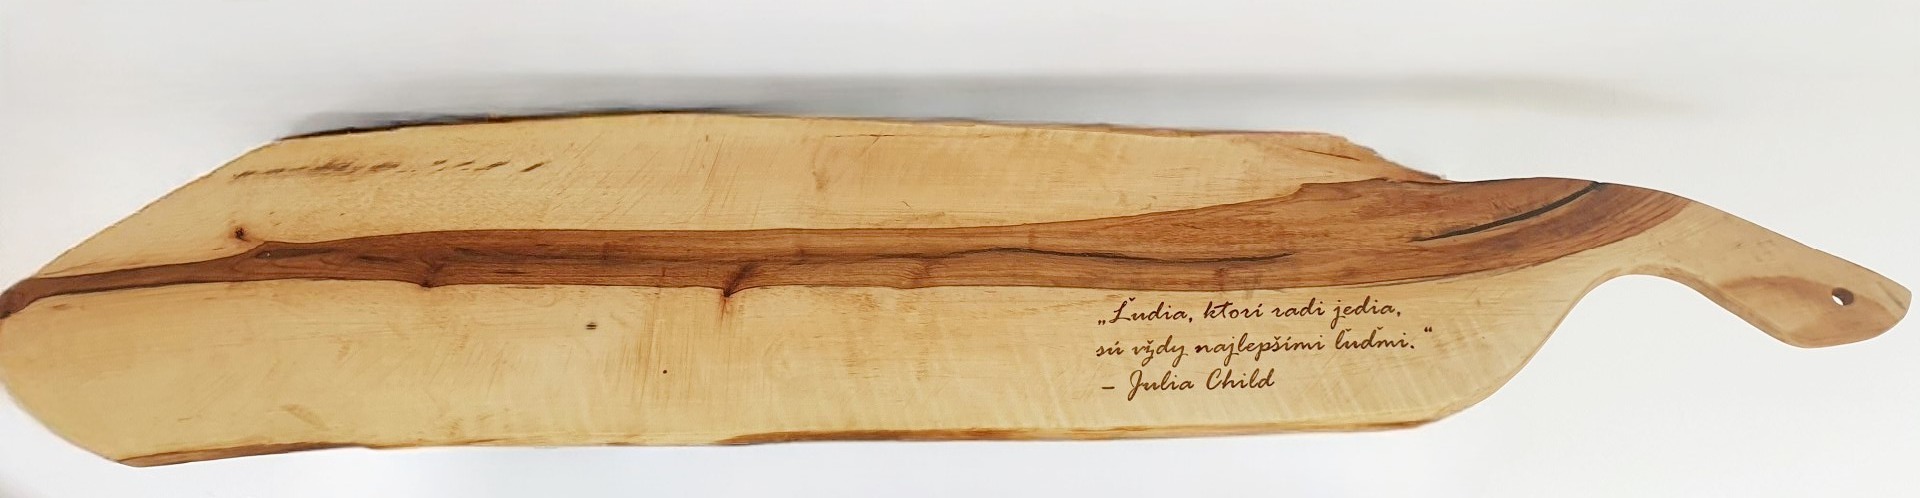 „Ľudia, ktorí radi jedia,
sú vždy najlepšími ľuďmi.“
– Julia Child